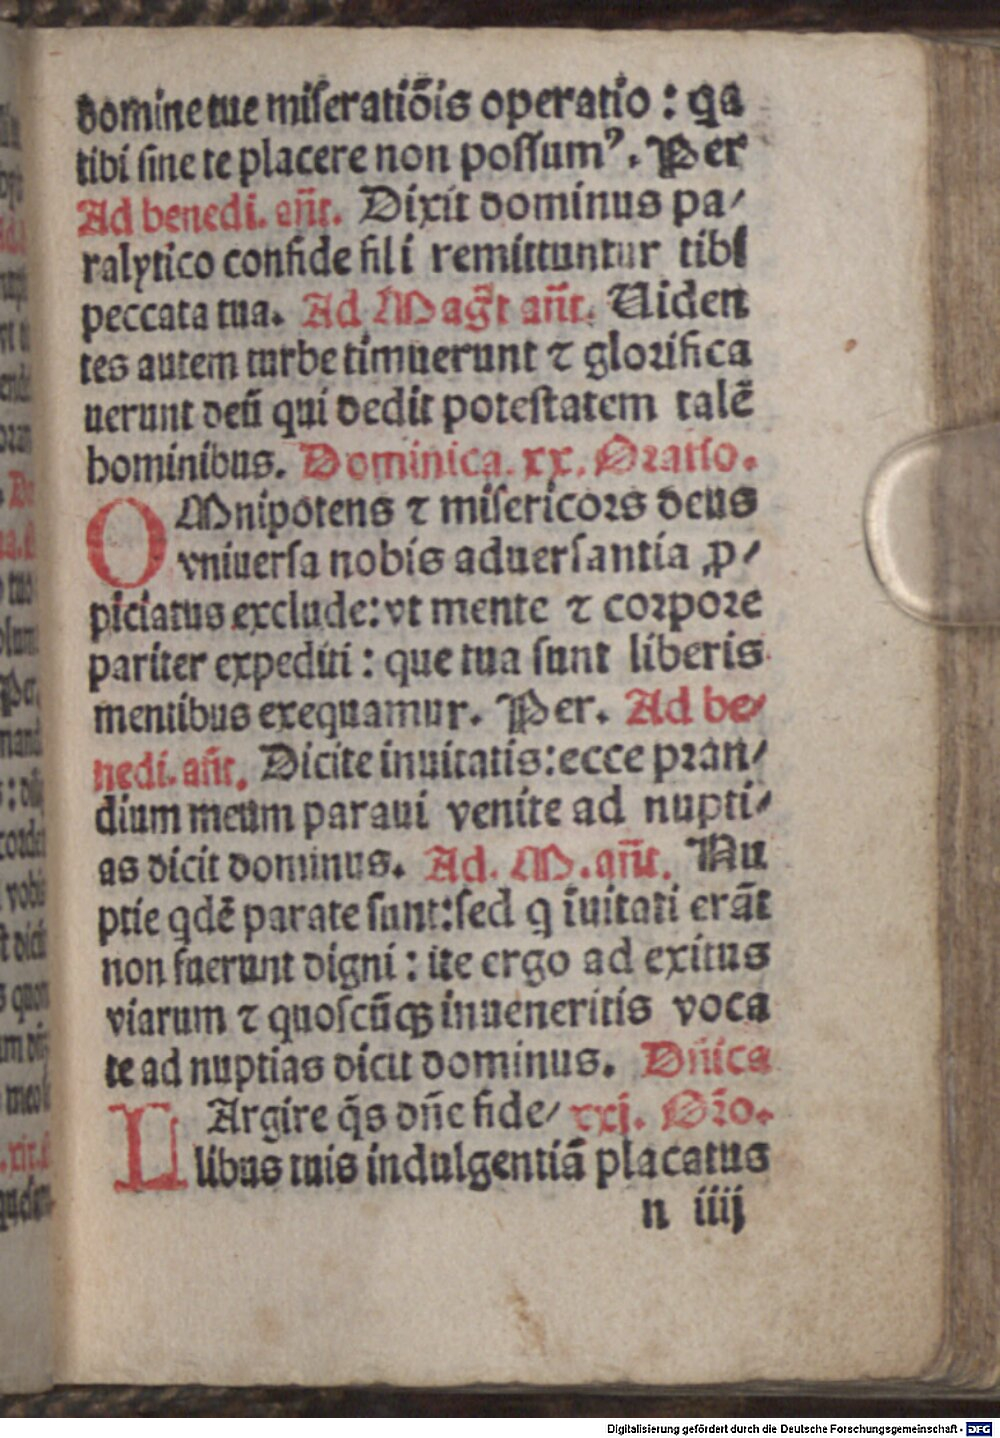 domine tue miſeratiōis operatio : qa
tibi ſine te placere non poſſumꝰ. Per
Ad benedi. añt. Dixit dominus pa⸗
ralytico confide fili remittuntur tibi
peccata tua. Ad Magt̄ añt. Uiden
tes autem turbe timuerunt ⁊ gloꝛifica
uerunt deū qui dedit poteſtatem talē
hominibus. Dominica. xx. Oꝛatio.
OMnipotens ⁊ miſericoꝛs deus
vniuerſa nobis aduerſantia ꝓ⸗
piciatus exclude: vt mente ⁊ coꝛpoꝛe
pariter expediti : que tua ſunt liberis
mentibus exequamur. Per. Ad be⸗
nedi. añt. Dicite inuitatis: ecce pꝛan⸗
dium meum paraui venite ad nupti⸗
as dicit dominus. Ad. M. añt. Nu
ptie qdē parate ſunt: ſed q īuitati erāt
non fuerunt digni : ite ergo ad exitus
viarum ⁊ quoſcūqꝫ inueneritis voca
te ad nuptias dicit dominus. Dñica
LArgire q̄s dñe fide⸗ xxj. Oꝛ̄o.
libus tuis indulgentiā placatus
n iiij
Digitalisierung gefördert durch die Deutsche Forschungsgemeinschaft - DFG